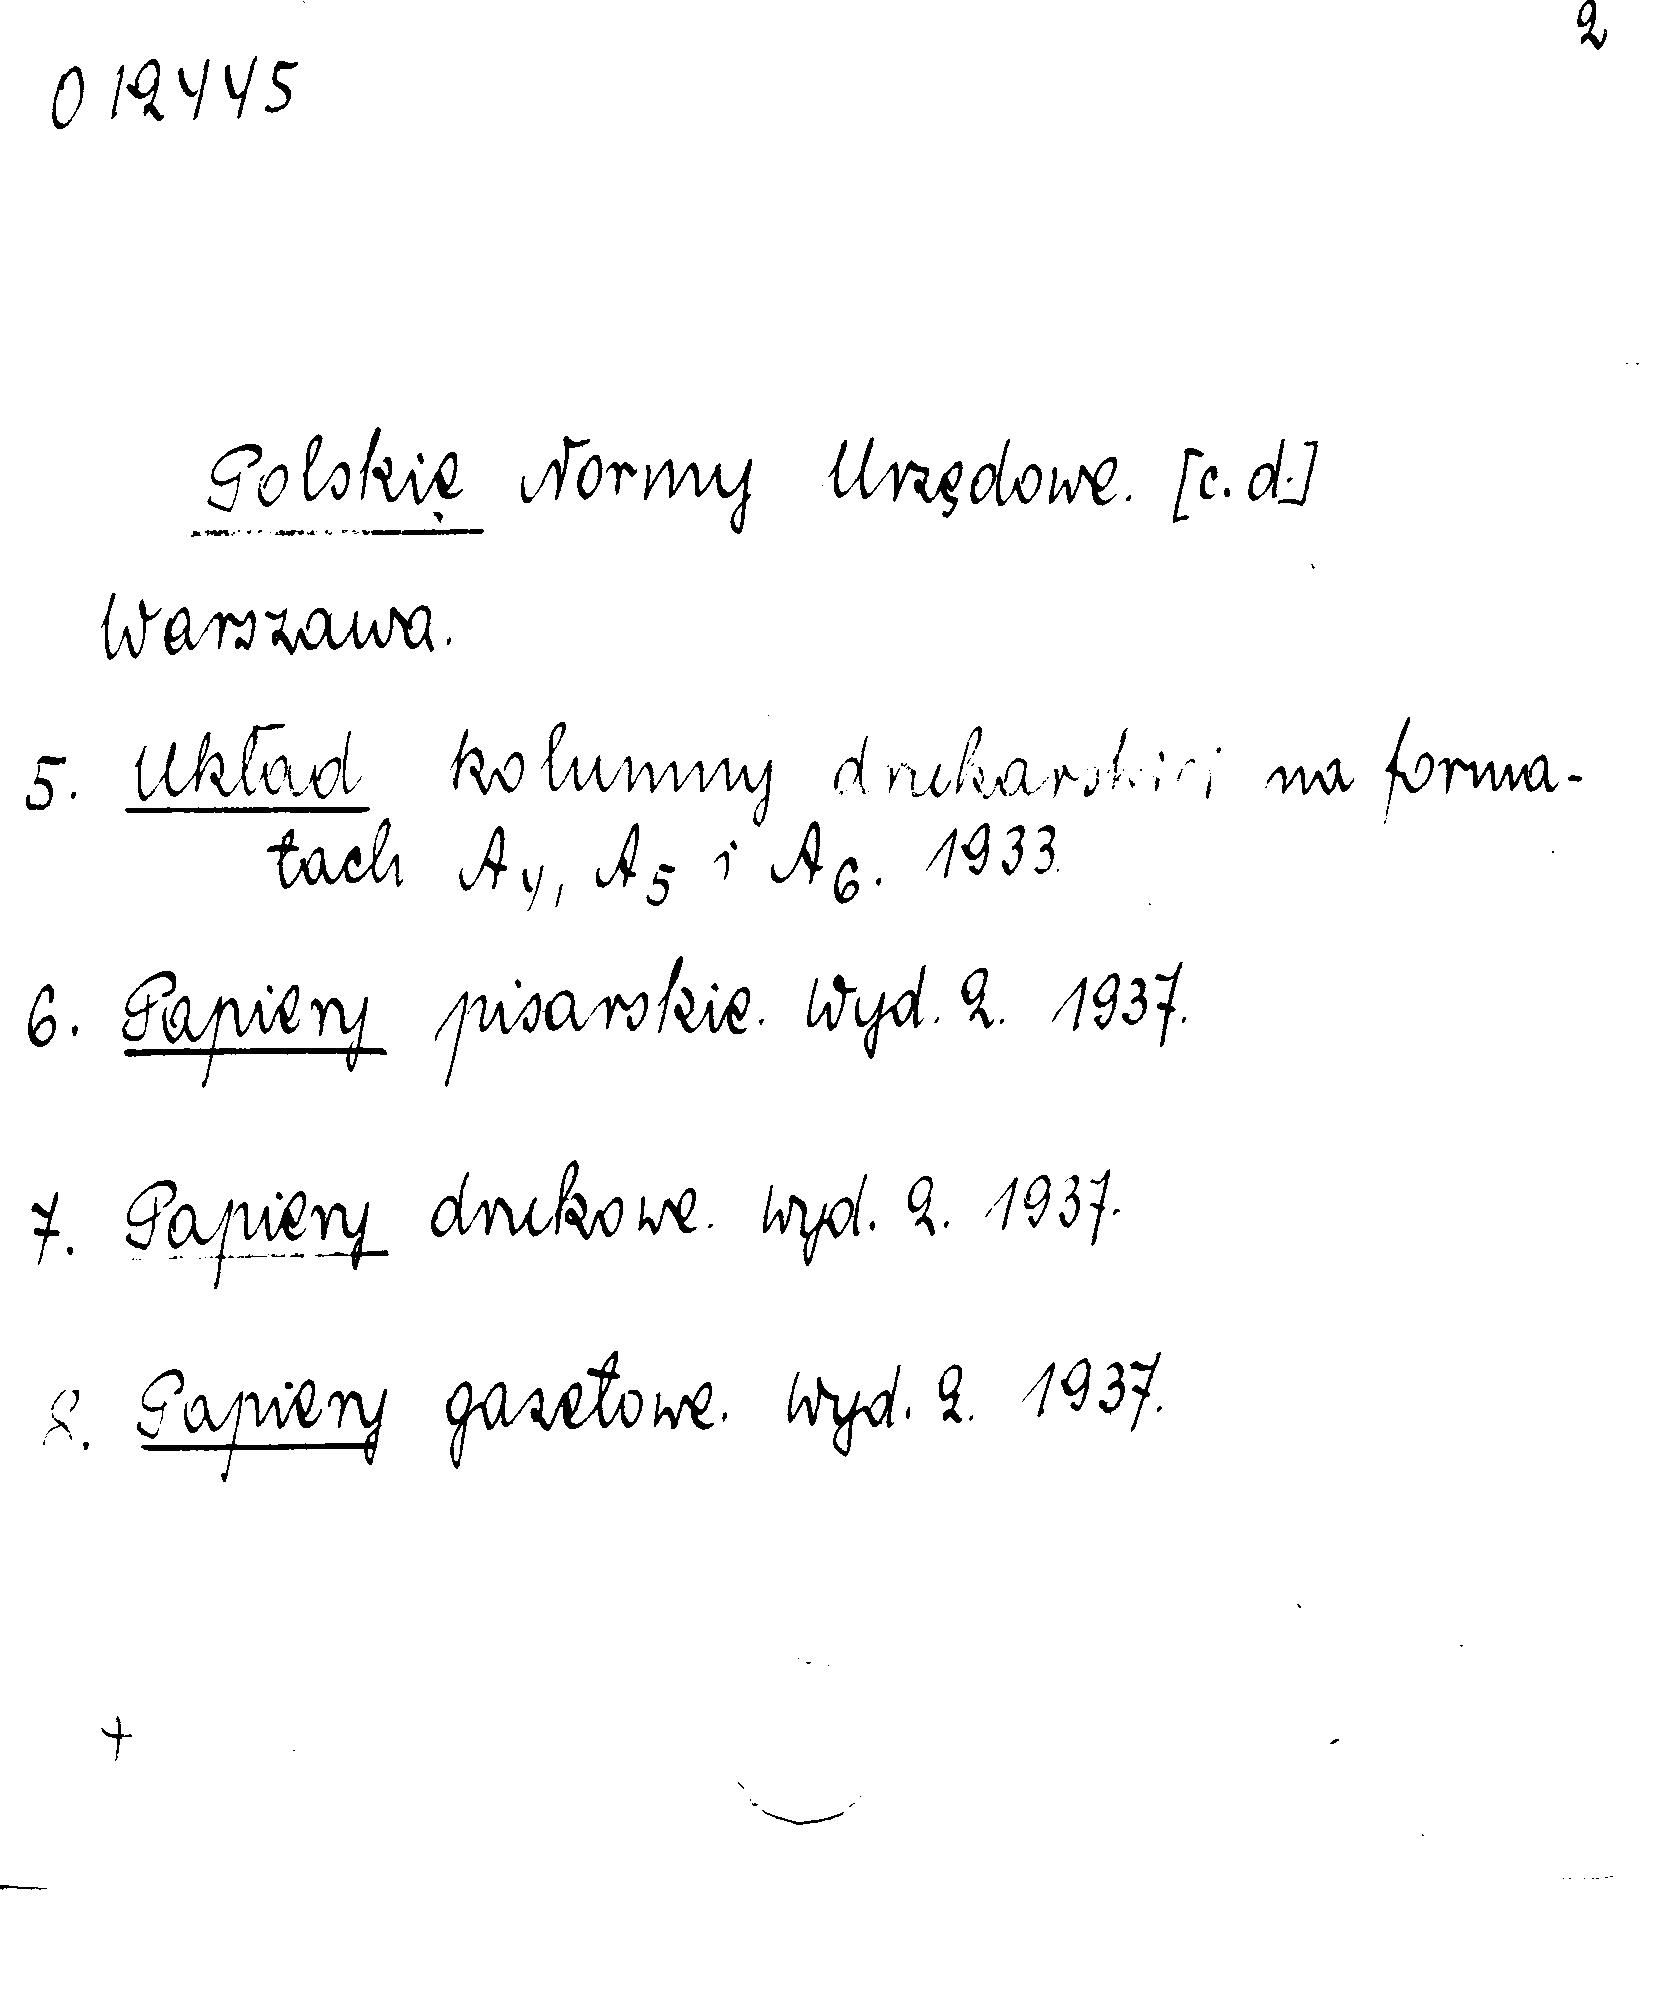 2
012445
Polskie Normy Urzędowe. [c.d.]
Warszawa.
5. Układ kolumny drukarskiej na forma-
tach A4, A5 i A6. 1933.
6. Papiery pisarskie. Wyd. 2. 1937.
7. Papiery drukowe. Wyd. 2. 1937.
8. Papiery gazetowe. Wyd. 2. 1937.
+